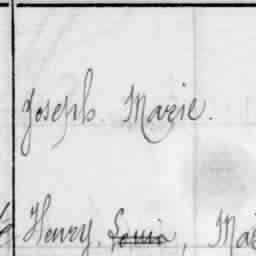 Joseph. Marie.
Henry. Louis, Mar